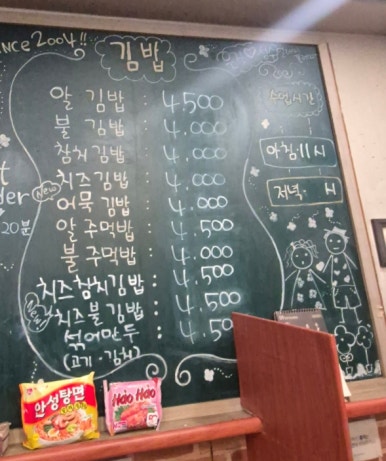 NCE 2004!!
김밥
알 김밥 : 4500
불 김밥 : 4.000
참치김밥 : 4.000
New 치즈김밥 : 4.000
어묵 김밥 : 4.000
알 주먹밥 : 4.500
불 주먹밥 : 4.000
치즈참치김밥 : 4.500
New 치즈불김밥 : 4.500
섞어만두 : 4.50
(고기.김치)
der
20분
아침 11시
저녁. 시
안성탕면
Hảo Hảo